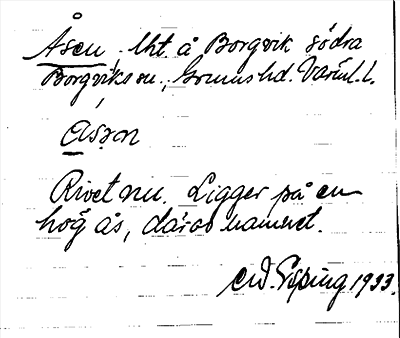 Åsen, lht. å Borgvik södra
Borgviks sn., Grums hd. Värml. l.
åsən
Rivet nu. Ligger på en
hög ås, därav namnet.
1933.